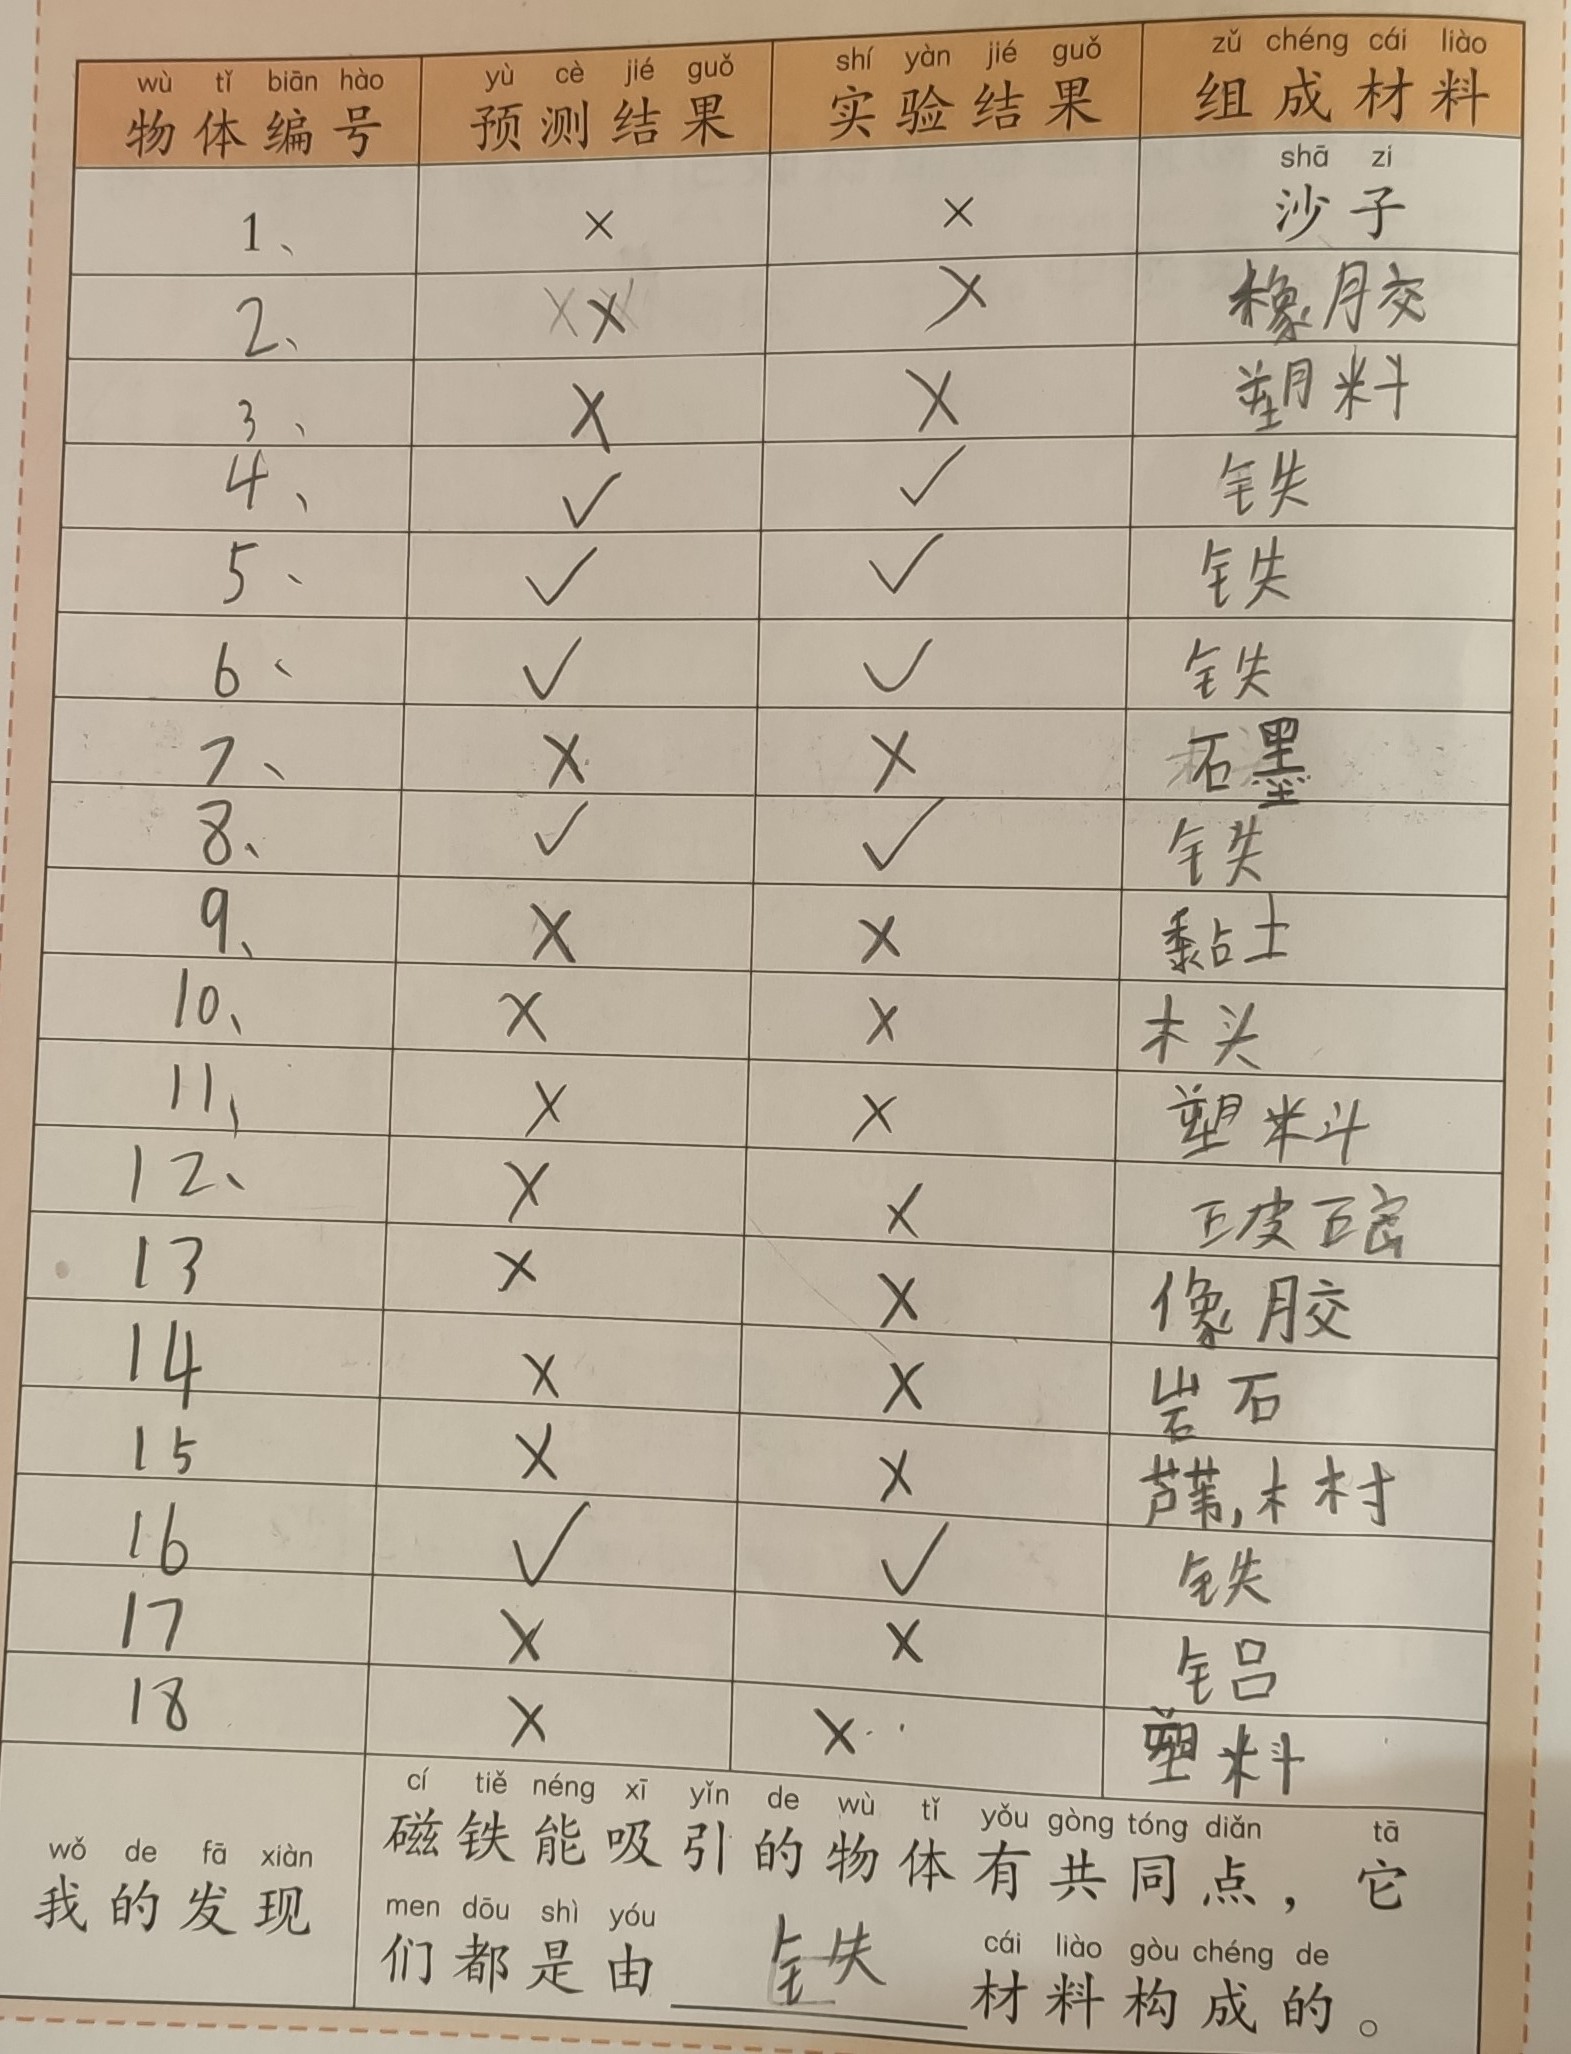 wù tǐ biān hào yù cè jié guǒ shí yàn jié guǒ zǔ chéng cái liào
物体编号 预测结果 实验结果 组成材料
shā zi
1、 × × 沙子
2、 × × 橡胶
3、 × × 塑料
4、 ✓ ✓ 铁
5、 ✓ ✓ 铁
6、 ✓ ✓ 铁
7、 × × 石墨
8、 ✓ ✓ 铁
9、 × × 黏土
10、 × × 木头
11、 × × 塑料
12、 × × 玻
13 × × 像胶
14 × × 岩石
15 × × 芦苇,木村
16 ✓ ✓ 铁
17 × × 铝
18 × × 塑料
wǒ de fā xiàn
我的发现
cí tiě néng xī yǐn de wù tǐ yǒu gòng tóng diǎn tā
磁铁能吸引的物体有共同点，它
men dōu shì yóu cái liào gòu chéng de
们都是由 铁 材料构成的。